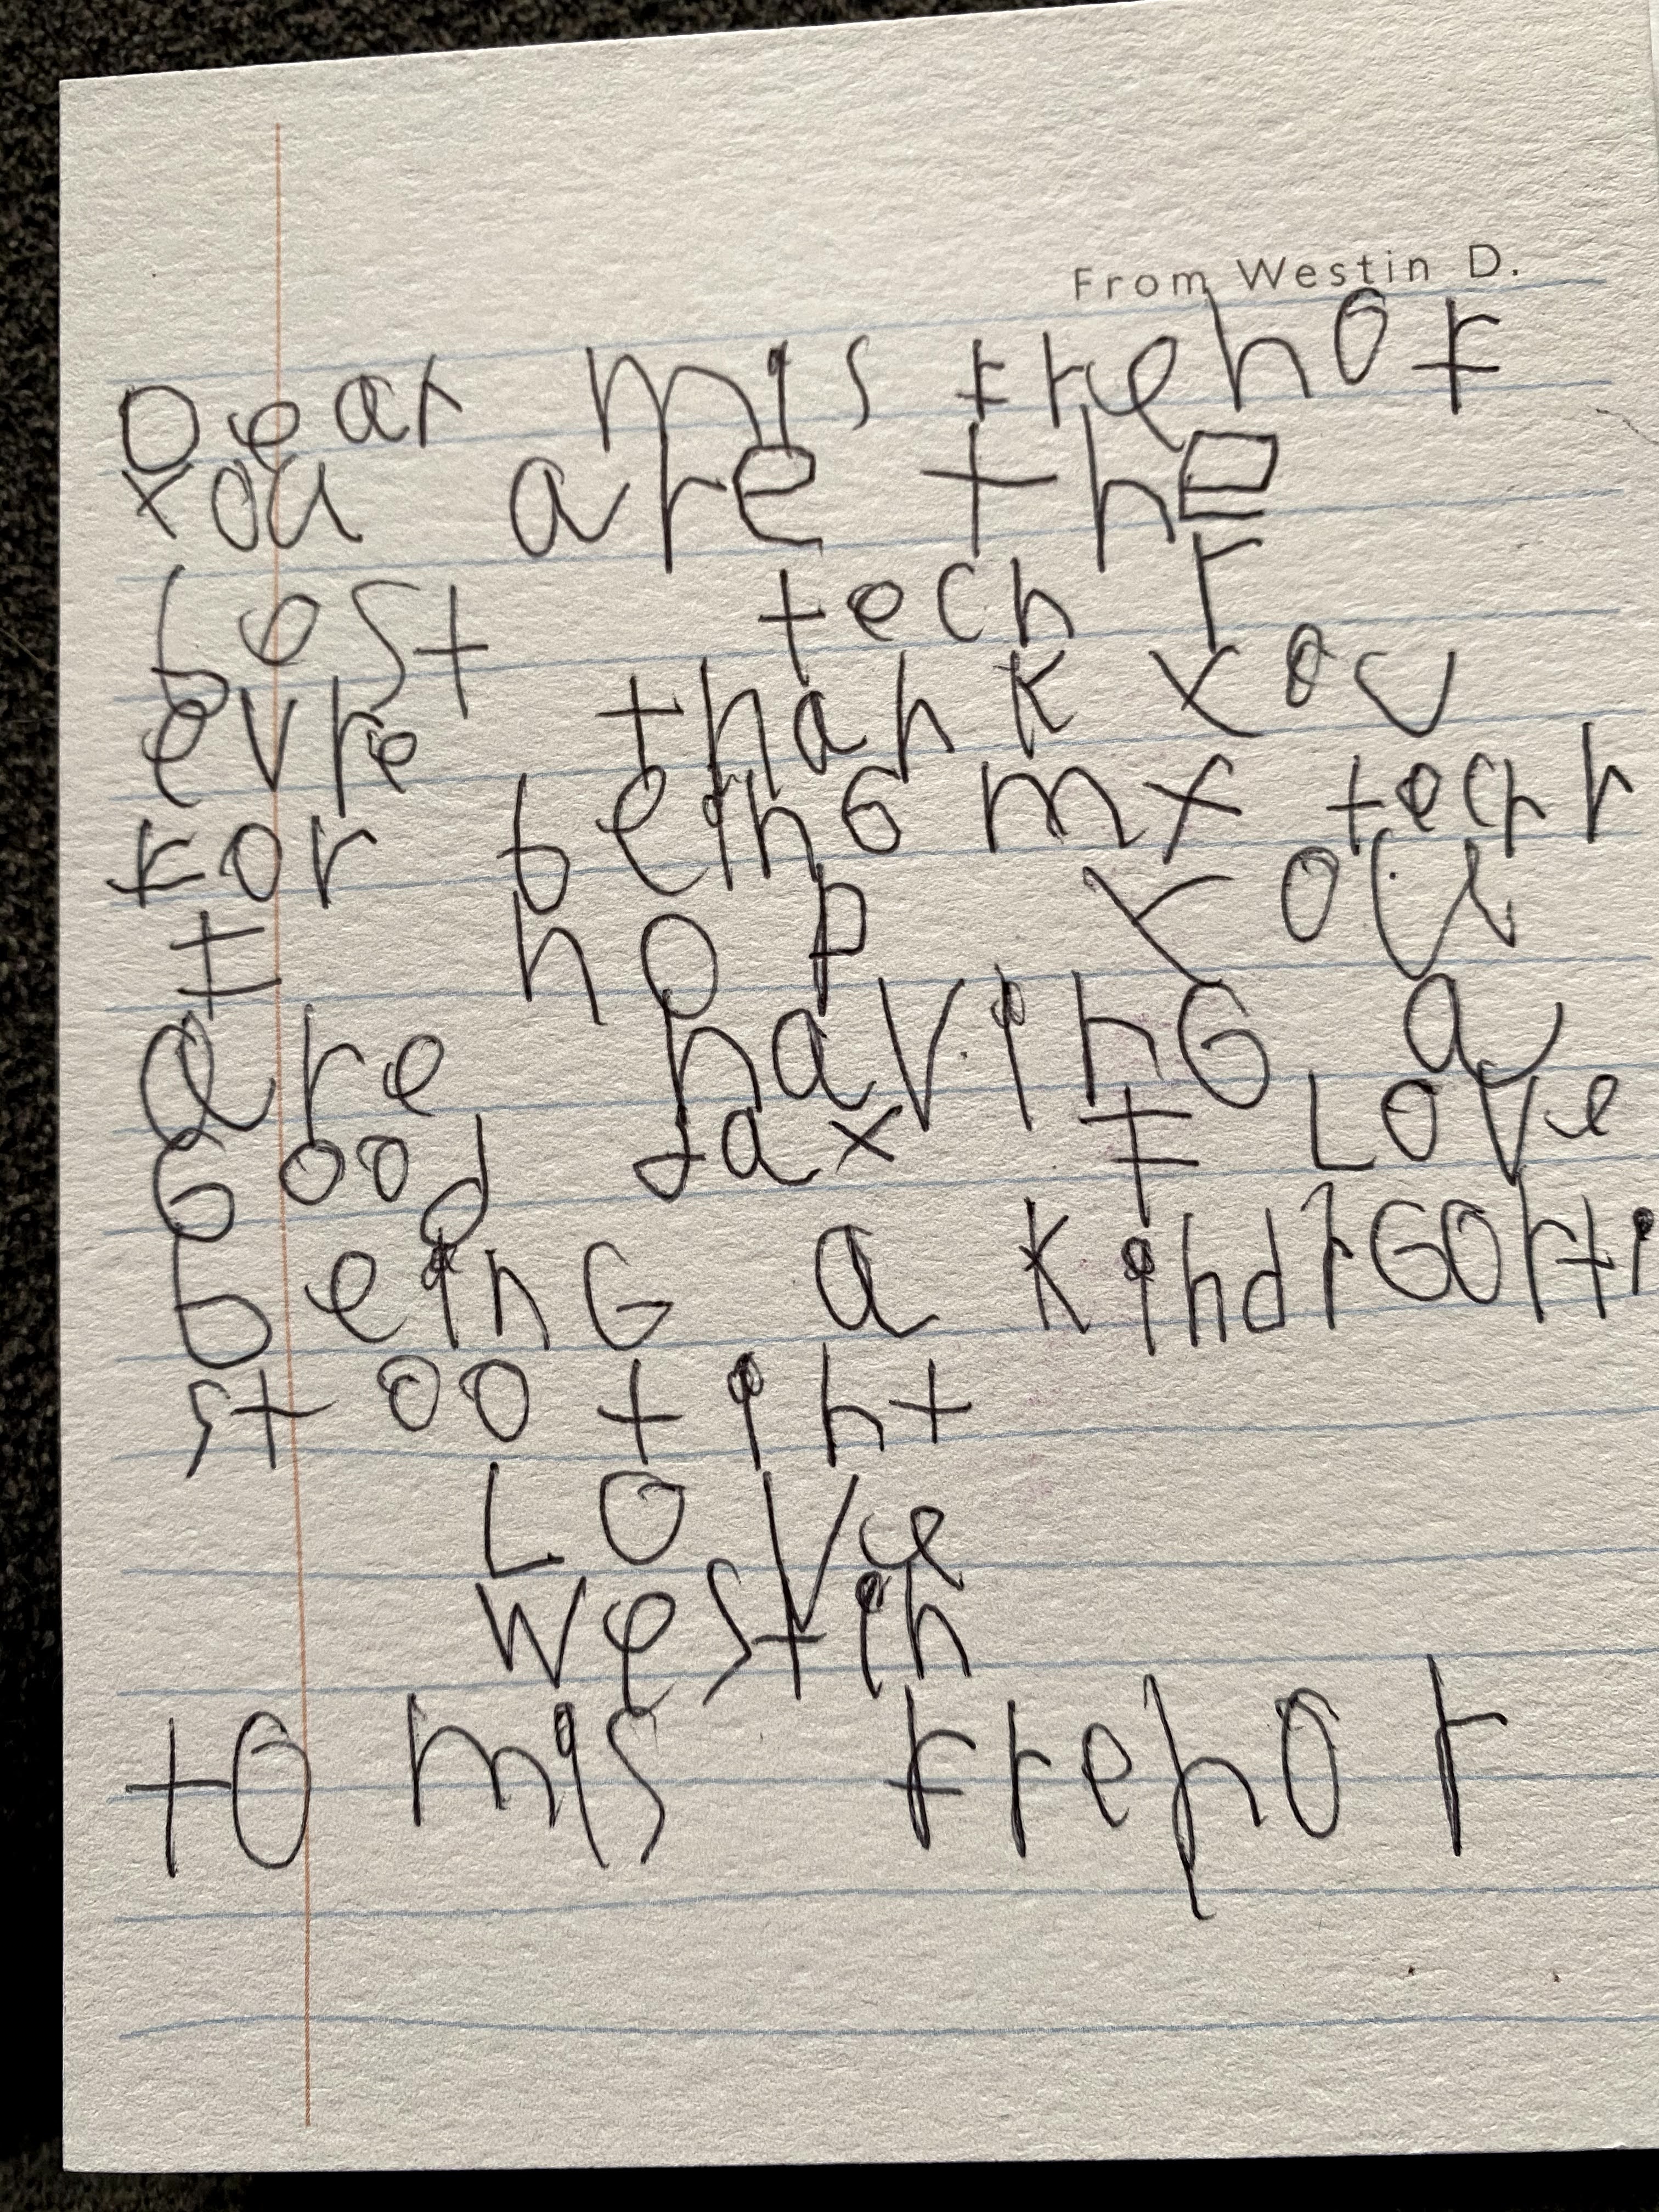 From Westin D.
Dear mis frehor
You are the
best tech r
evre thank you
for beinG my techr
I hop you
are havinG a
Good day I Love
beinG a kindrGorti
st oo tint
LOVe
Westin
to mis frehor